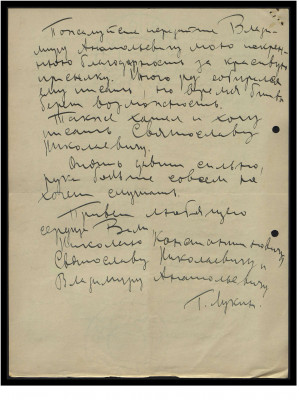 Пожалуйста передайте Влади-
миру Анатольевичу мою искрен-
нюю благодарность за красивую
присылку. Много раз собирался
ему писать, но время
берет возможность.
Также хотел и хочу
писать Святославу
Николаевичу.
Опять сильно,
рука больше совсем не
хочет слушать.
Привет любящего
сердца Вам,
Николаю Константиновичу,
Святославу Николаевичу и
Владимиру Анатольевичу
Г. Лукин.